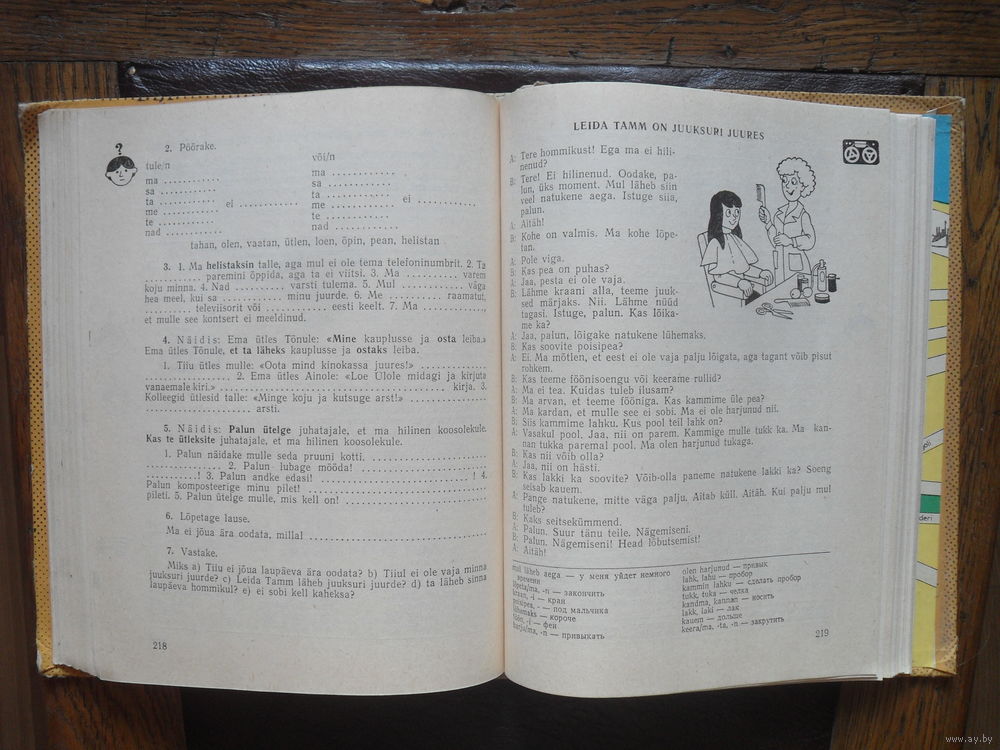 ?
2. Pöörake.
tule/n
ma ...........
sa ...........
ta ...........
me ...........
te ...........
nad ...........
ei ...........
või/n
ma ...........
sa ...........
ta ...........
me ...........
te ...........
nad ...........
ei ...........
tahan, olen, vaatan, ütlen, loen, õpin, pean, helistan
3. 1. Ma helistaksin talle, aga mul ei ole tema telefoninumbrit. 2. Ta
........... paremini õppida, aga ta ei viitsi. 3. Ma ........... varem
koju minna. 4. Nad ........... varsti tulema. 5. Mul ........... väga
hea meel, kui sa ........... minu juurde. 6. Me ........... raamatut,
........... televiisorit või ........... eesti keelt. 7. Ma ...........,
et mulle see kontsert ei meeldinud.
4. Näidis: Ema ütles Tõnule: «Mine kauplusse ja osta leiba.»
Ema ütles Tõnule, et ta läheks kauplusse ja ostaks leiba.
1. Tiiu ütles mulle: «Oota mind kinokassa juures!» ...........
........... 2. Ema ütles Ainole: «Loe Ülole midagi ja kirjuta
vanaemale kiri.» ........... kirja. 3.
Kolleegid ütlesid talle: «Minge koju ja kutsuge arst!» ...........
........... arsti.
5. Näidis: Palun ütelge juhatajale, et ma hilinen koosolekule.
Kas te ütleksite juhatajale, et ma hilinen koosolekule.
1. Palun näidake mulle seda pruuni kotti. ...........
........... 2. Palun lubage mööda! ...........
...........! 3. Palun andke edasi! ...........! 4.
Palun komposteerige minu pilet! ...........
pileti. 5. Palun ütelge mulle, mis kell on! ...........
6. Lõpetage lause.
Ma ei jõua ära oodata, millal ...........
7. Vastake.
Miks a) Tiiu ei jõua laupäeva ära oodata? b) Tiiul ei ole vaja minna
juuksuri juurde? c) Leida Tamm läheb juuksuri juurde? d) ta läheb sinna
laupäeva hommikul? e) ei sobi kell kaheksa?
218
LEIDA TAMM ON JUUKSURI JUURES
A: Tere hommikust! Ega ma ei hili-
nenud?
B: Tere! Ei hilinenud. Oodake, pa-
lun, üks moment. Mul läheb siin
veel natukene aega. Istuge siia,
palun.
A: Aitäh!
B: Kohe on valmis. Ma kohe lõpe-
tan.
A: Pole viga.
B: Kas pea on puhas?
A: Jaa, pesta ei ole vaja.
B: Lähme kraani alla, teeme juuk-
sed märjaks. Nii. Lähme nüüd
tagasi. Istuge, palun. Kas lõika-
me ka?
A: Jaa, palun, lõigake natukene lühemaks.
B: Kas soovite poisipea?
A: Ei. Ma mõtlen, et eest ei ole vaja palju lõigata, aga tagant võib pisut
rohkem.
B: Kas teeme föönisoengu või keerame rullid?
A: Ma ei tea. Kuidas tuleb ilusam?
B: Ma arvan, et teeme fööniga. Kas kammime üle pea?
A: Ma kardan, et mulle see ei sobi. Ma ei ole harjunud nii.
B: Siis kammime lahku. Kus pool teil lahk on?
A: Vasakul pool. Jaa, nii on parem. Kammige mulle tukk ka. Ma kan-
nan tukka paremal pool. Ma olen harjunud tukaga.
B: Kas nii võib olla?
A: Jaa, nii on hästi.
B: Kas lakki ka soovite? Võib-olla paneme natukene lakki ka? Soeng
seisab kauem.
A: Pange natukene, mitte väga palju. Aitab küll. Aitäh. Kui palju mul
tuleb?
B: Kaks seitsekümmend.
A: Palun. Suur tänu teile. Nägemiseni.
B: Palun. Nägemiseni! Head lõbutsemist!
A: Aitäh!
mul läheb aega — у меня уйдет немного
времени
lõpeta/ma, -n — закончить
kraan, -i — кран
poisipea, - — под мальчика
lühemaks — короче
föön, -i — фен
harju/ma, -n — привыкать
olen harjunud — привык
lahk, lahu — пробор
kammin lahku — сделать пробор
tukk, tuka — челка
kandma, kannan — носить
lakk, laki — лак
kauem — дольше
keera/ma, -ta, -n — закрутить
219
deri
www.ay.by